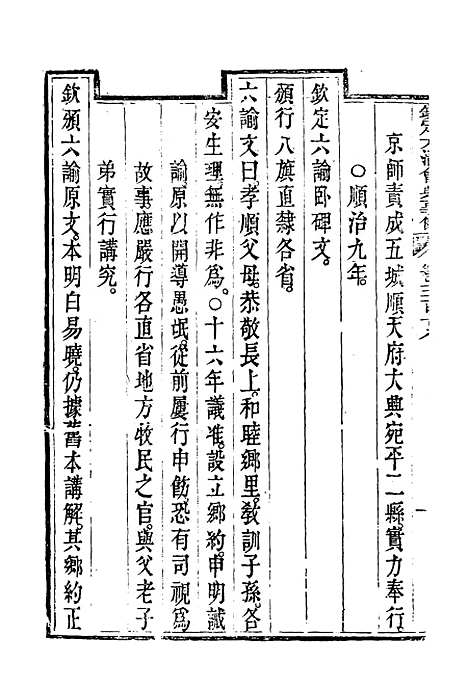 欽定大清會典事例
京師責成五城順天府大興宛平二縣實力奉行
○順治九年。
欽定六諭卧碑文。
頒行八旗直隸各省。
六諭文曰孝順父母。恭敬長上。和睦鄉里。敎訓子孫。各
安生理。無作非爲。○十六年議准。設立鄉約。申明誡
諭。原以開導愚氓。從前屢行申飭。恐有司視爲
故事。應嚴行各直省地方牧民之官。與父老子
弟實行講究。
欽頒六諭原文。本明白易曉。仍據舊本講解。其鄉約正